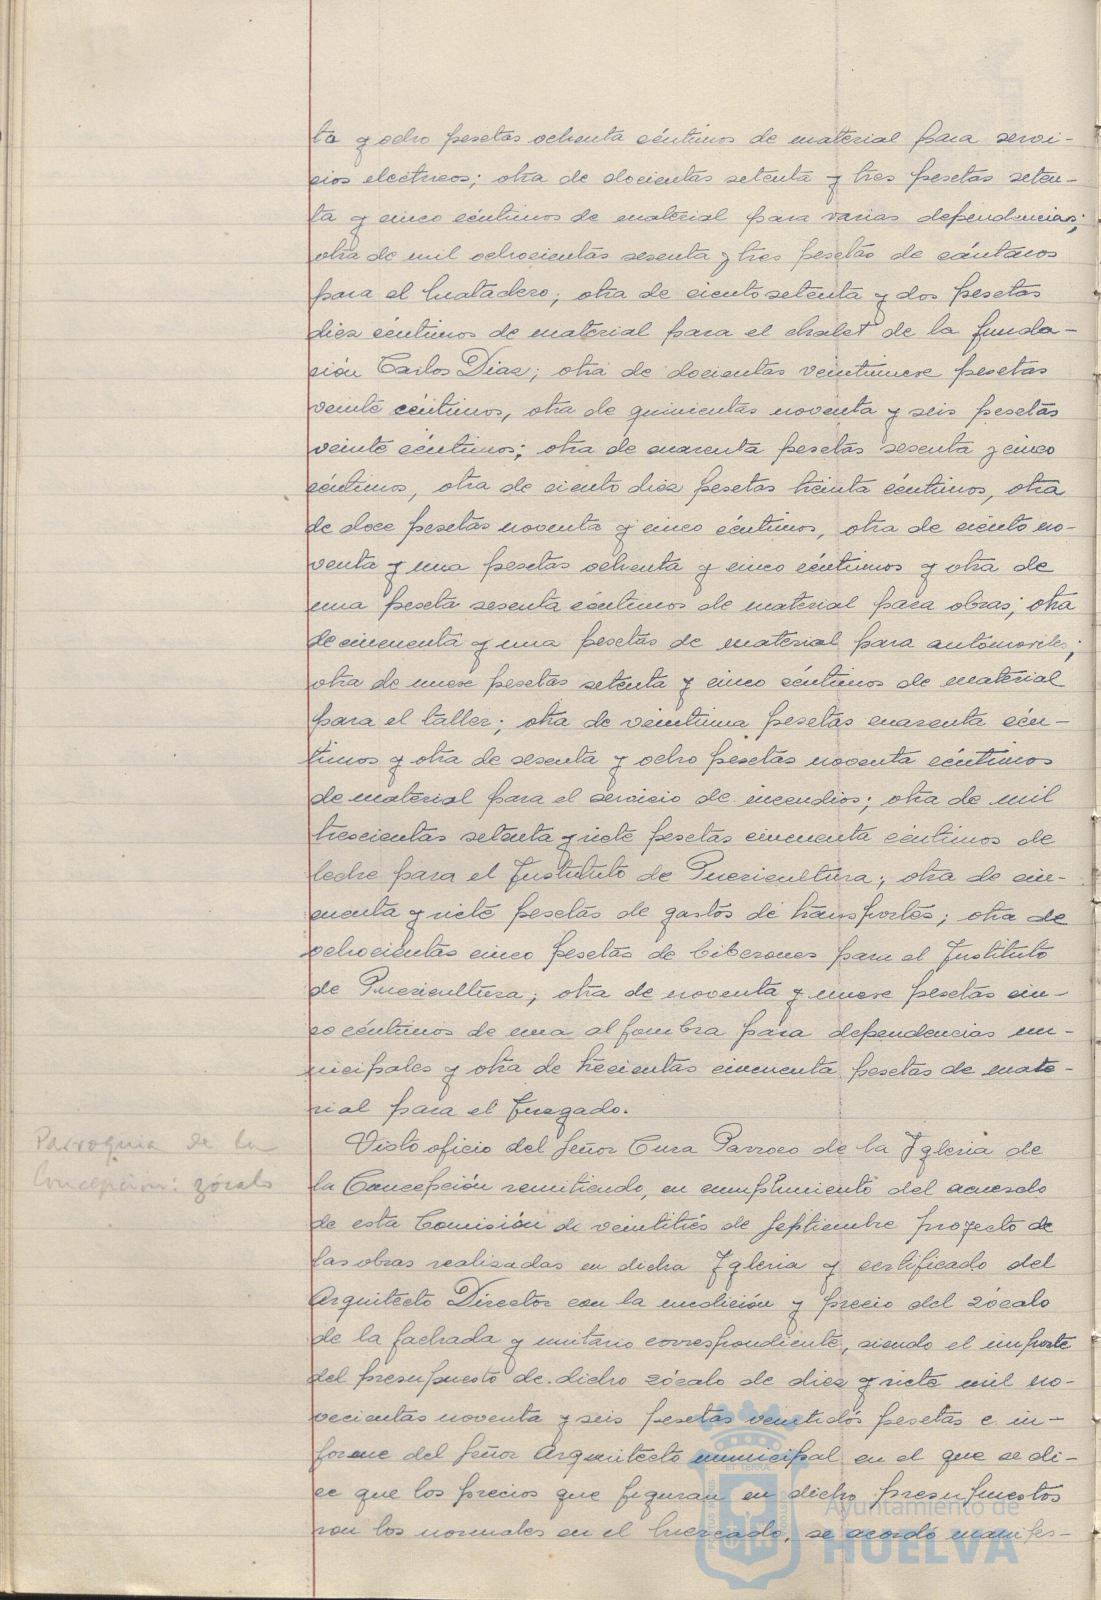 ta y ocho pesetas ochenta céntimos de material para servi-
cios electricos; otra de docientas setenta y tres pesetas seten-
ta y cinco céntimos de material para varias dependencias;
otra de mil ochocientas sesenta y tres pesetas de cántaros
para el Matadero; otra de ciento setenta y dos pesetas
diez céntimos de material para el chalet de la funda-
ción Carlos Diaz; otra de docientas veintinueve pesetas
veinte céntimos, otra de quinientas noventa y seis pesetas
veinte céntimos; otra de cuarenta pesetas sesenta y cinco
céntimos, otra de ciento diez pesetas treinta céntimos, otra
de doce pesetas noventa y cinco céntimos, otra de ciento no-
venta y una pesetas ochenta y cinco céntimos y otra de
una peseta sesenta céntimos de material para obras; otra
de cincuenta y una pesetas de material para automoviles;
otra de nueve pesetas setenta y cinco céntimos de material
para el taller; otra de veintiuna pesetas cuarenta cén-
timos y otra de sesenta y ocho pesetas noventa céntimos
de material para el servicio de incendios; otra de mil
trescientas setenta y siete pesetas cincuenta céntimos de
leche para el Instituto de Puericultura; otra de cin-
cuenta y siete pesetas de gastos de transportes; otra de
ochocientas cinco pesetas de biberones para el Instituto
de Puericultura; otra de noventa y nueve pesetas cin-
co céntimos de una alfombra para dependencias mu-
nicipales y otra de trecientas cincuenta pesetas de mate-
rial para el Juzgado.
Parroquia de la
Concepción: zócalo
Visto oficio del Señor Cura Parroco de la Iglesia de
la Concepción remitiendo, en cumplimiento del acuerdo
de esta Comisión de veintitrés de Septiembre proyecto de
las obras realizadas en dicha Iglesia y certificado del
Arquitecto Director con la medición y precio del zócalo
de la fachada y unitario correspondiente, siendo el importe
del presupuesto de dicho zócalo de diez y siete mil no-
vecientas noventa y seis pesetas veintidós pesetas e in-
forme del Señor Arquitecto municipal en el que se di-
ce que los precios que figuran en dicho presupuestos
son los normales en el mercado, se acordó manifes-
Ayuntamiento de
HUELVA